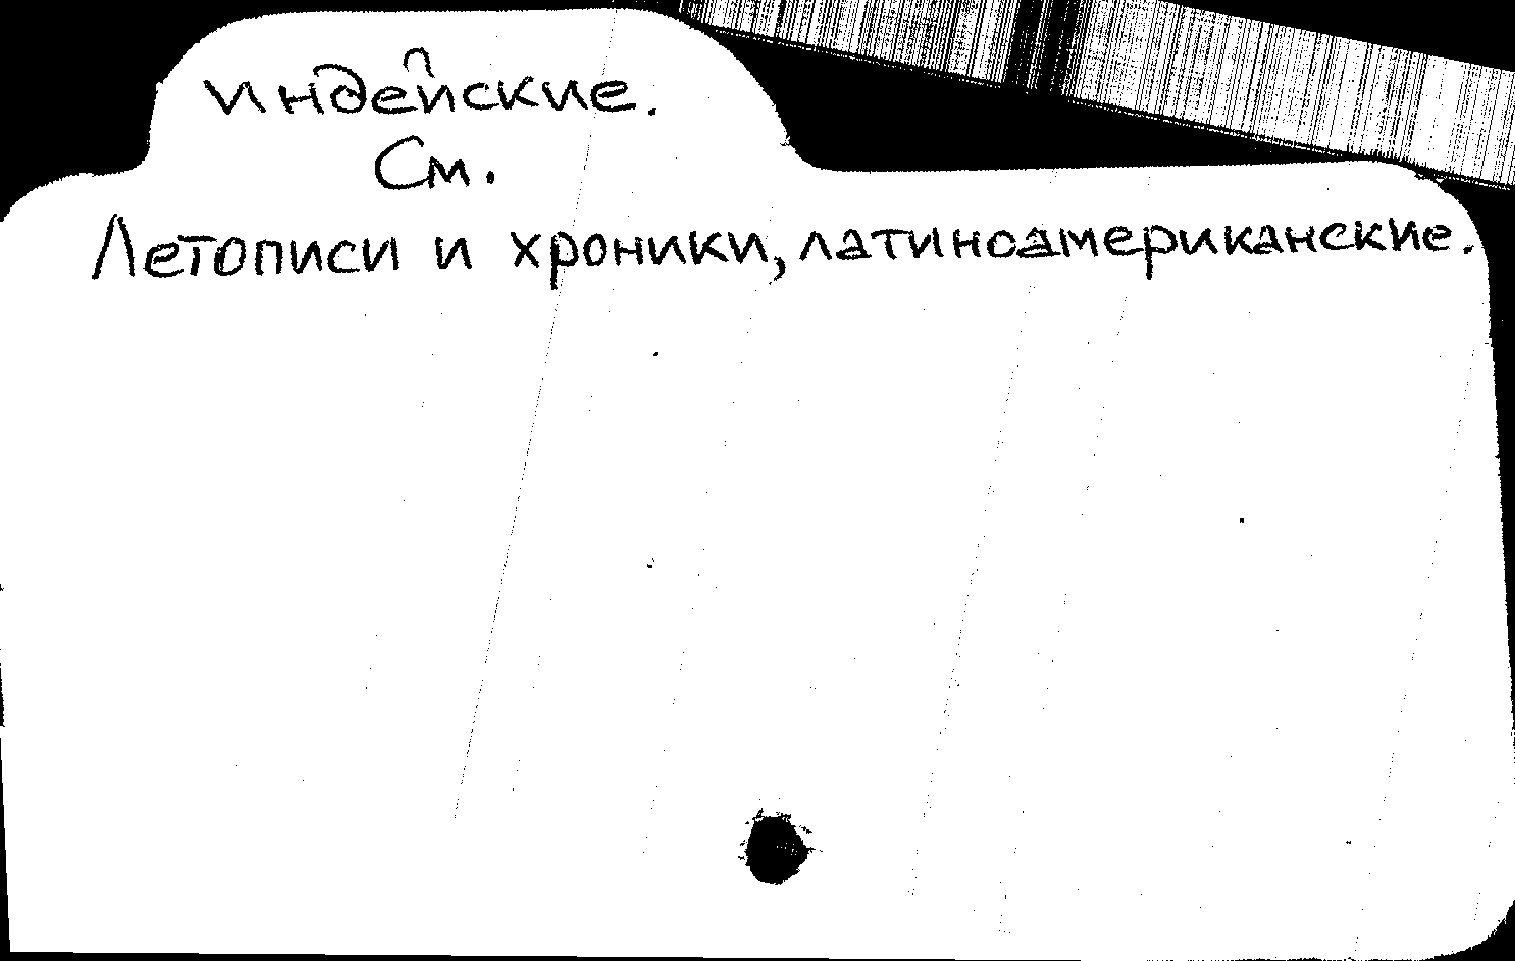 индейские.
См.
Летописи и хроники, латиноамериканские.